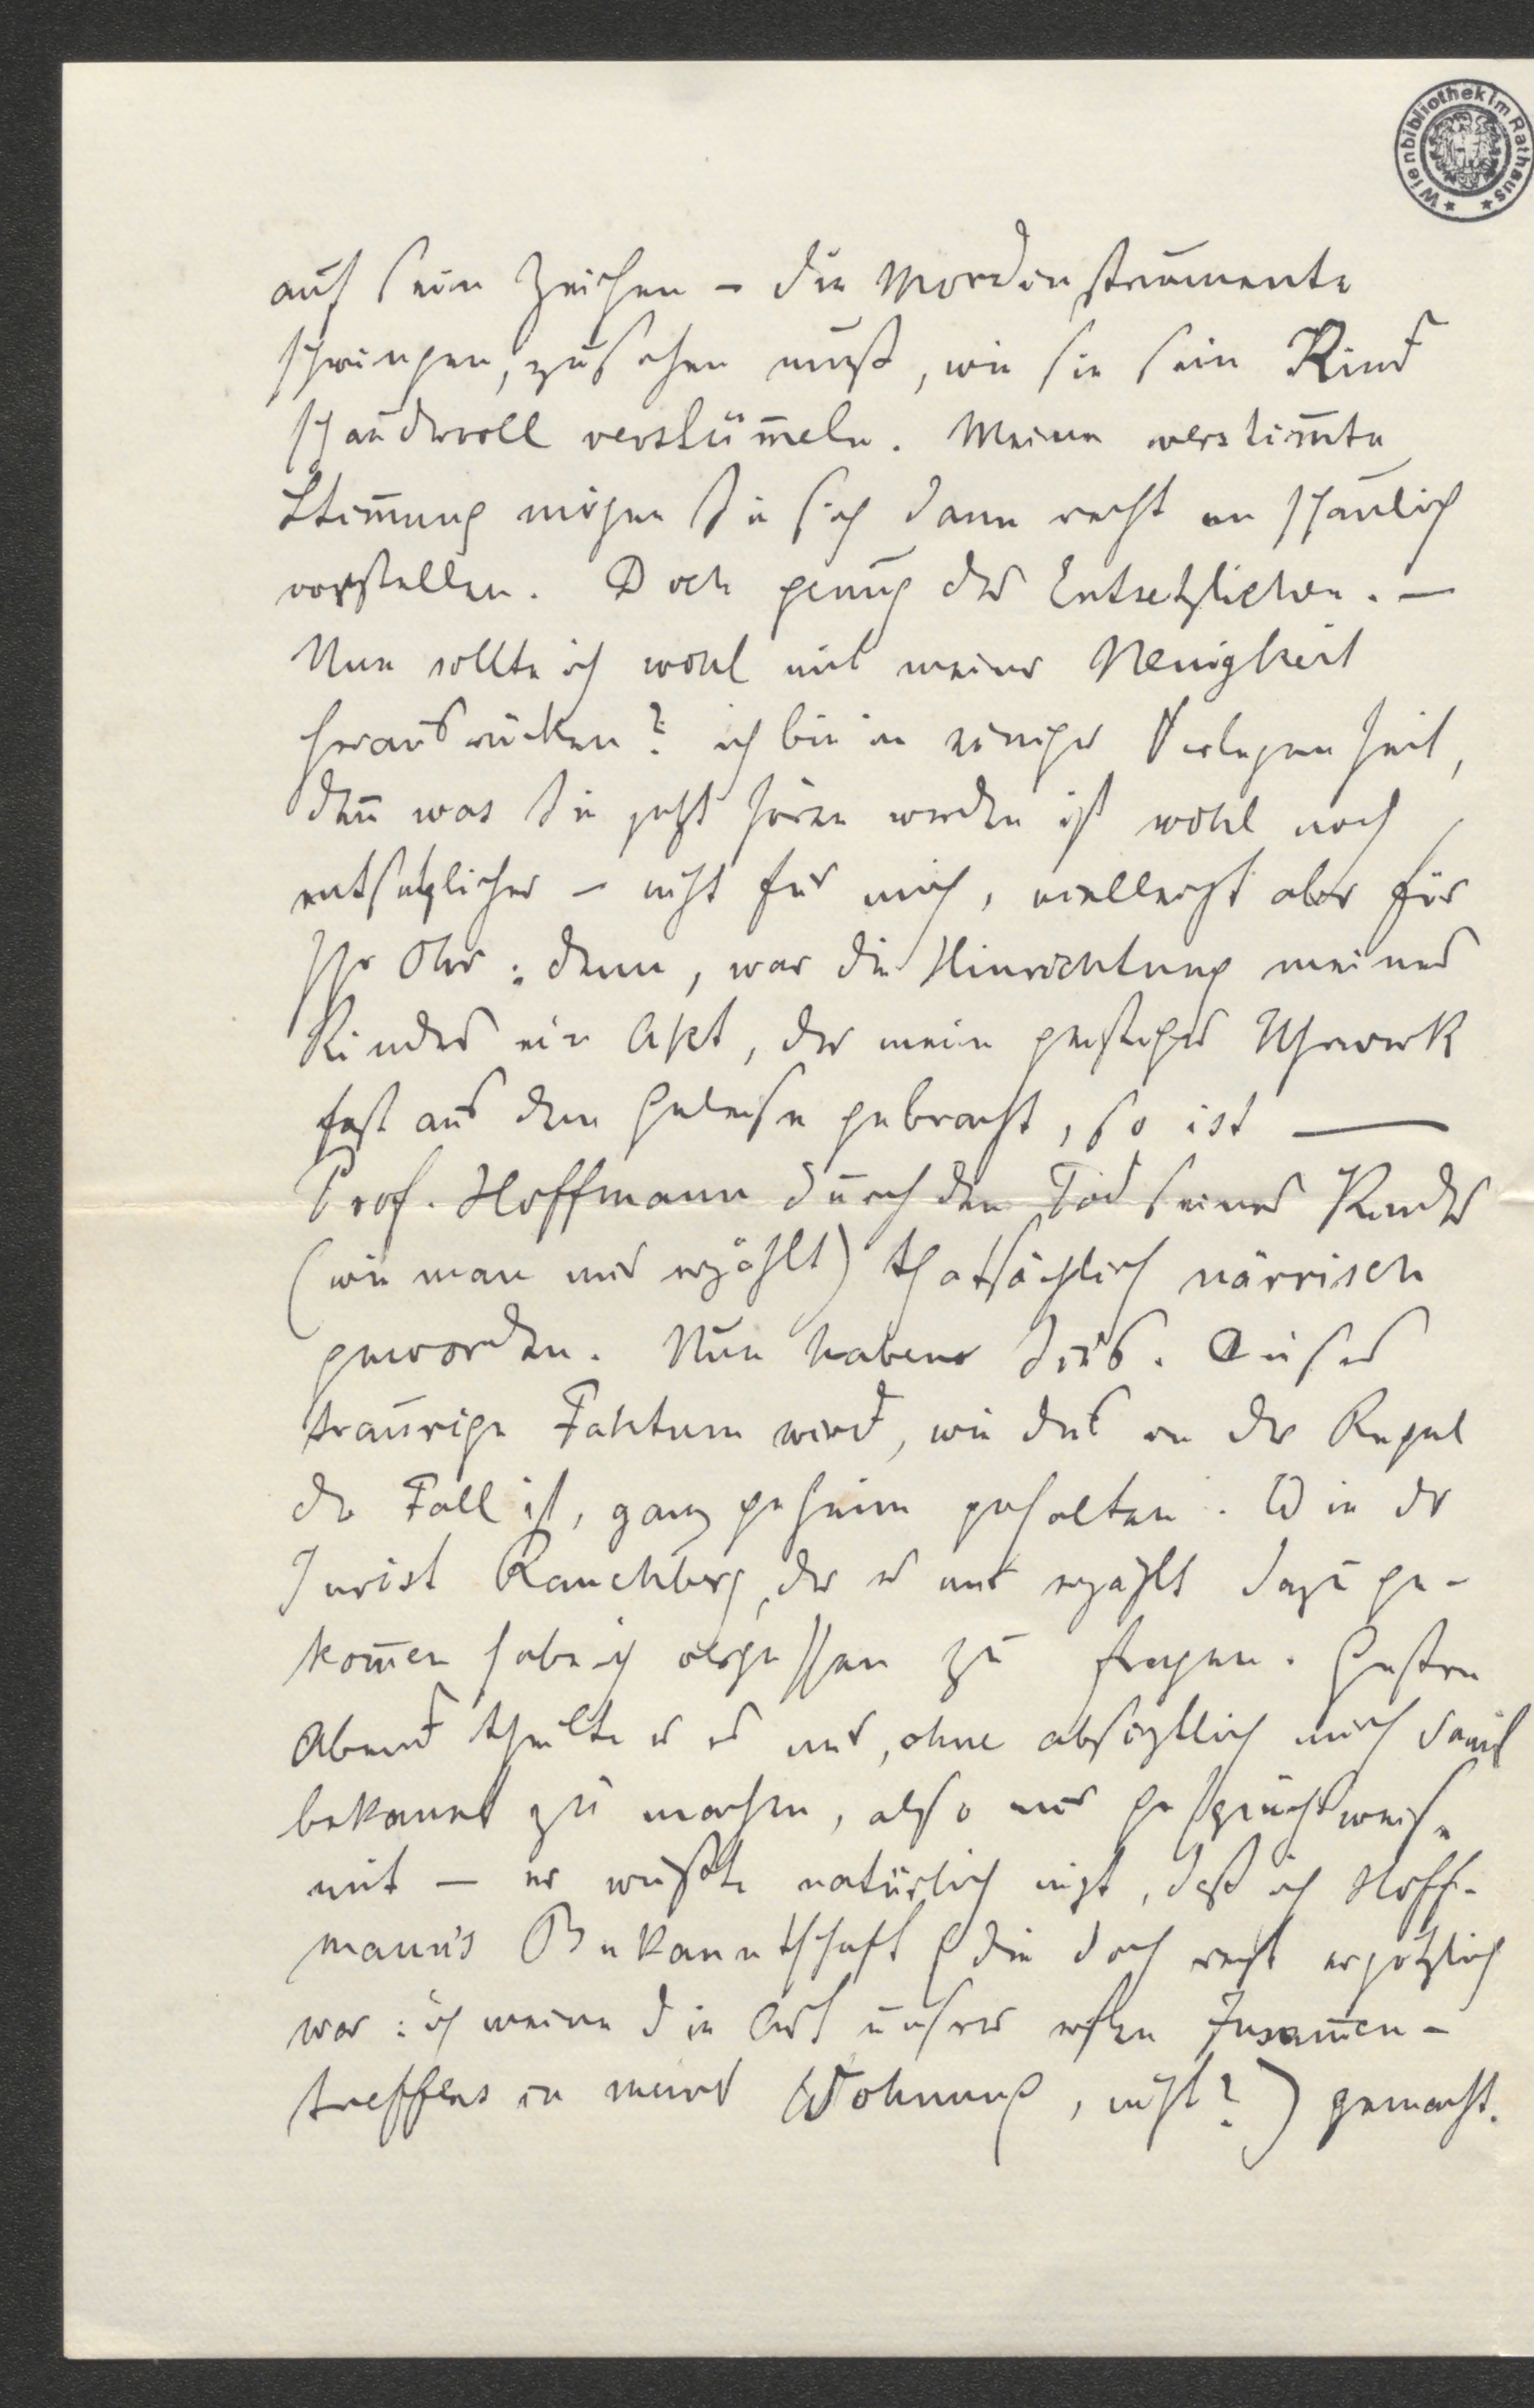 Wienbibliothek im Rathaus
auf sein Zeichen – die Mordinstrumente
schwingen, zusehen muß, wie sie sein Kind
schaudervoll verstüm̅eln. Meine verstim̅te
Stim̅ung mögen Sie sich dann recht anschaulich
vorstellen. Doch genug des Entsetzlichen. —
Nun sollte ich wohl mit meiner Neuigkeit
herausrücken? ich bin in einiger Verlegenheit,
den̅ was Sie jetzt hören werden ist wohl noch
entsetzlicher – nicht für mich, vielleicht aber für
Ihr Ohr: denn, war die Hinrichtung meines
Kindes ein Akt, der mein geistiges Uhrwerk
fast aus dem Geleise gebracht, so ist ——
Prof. Hoffmann durch den Tod seines Kindes
(wie man mir erzählt) thatsächlich närrisch
geworden. Nun haben's dies. Dieses
traurige Faktum wird, wie das in der Regel
der Fall ist, ganz geheim gehalten. Wie der
Jurist Rauchberg, der es mir erzählt dazu ge-
kom̅en habe ich vergessen zu fragen. Gestern
Abend theilte er es mir, ohne absichtlich mich damit
bekannt zu machen, also nur gesprächsweise
mit — er wußte natürlich nicht, daß ich Hoff-
mann's Bekanntschaft (die doch recht ergötzlich
war: ich meine die Art unseres ersten Zusam̅en-
treffens in meiner Wohnung, nicht?) gemacht.